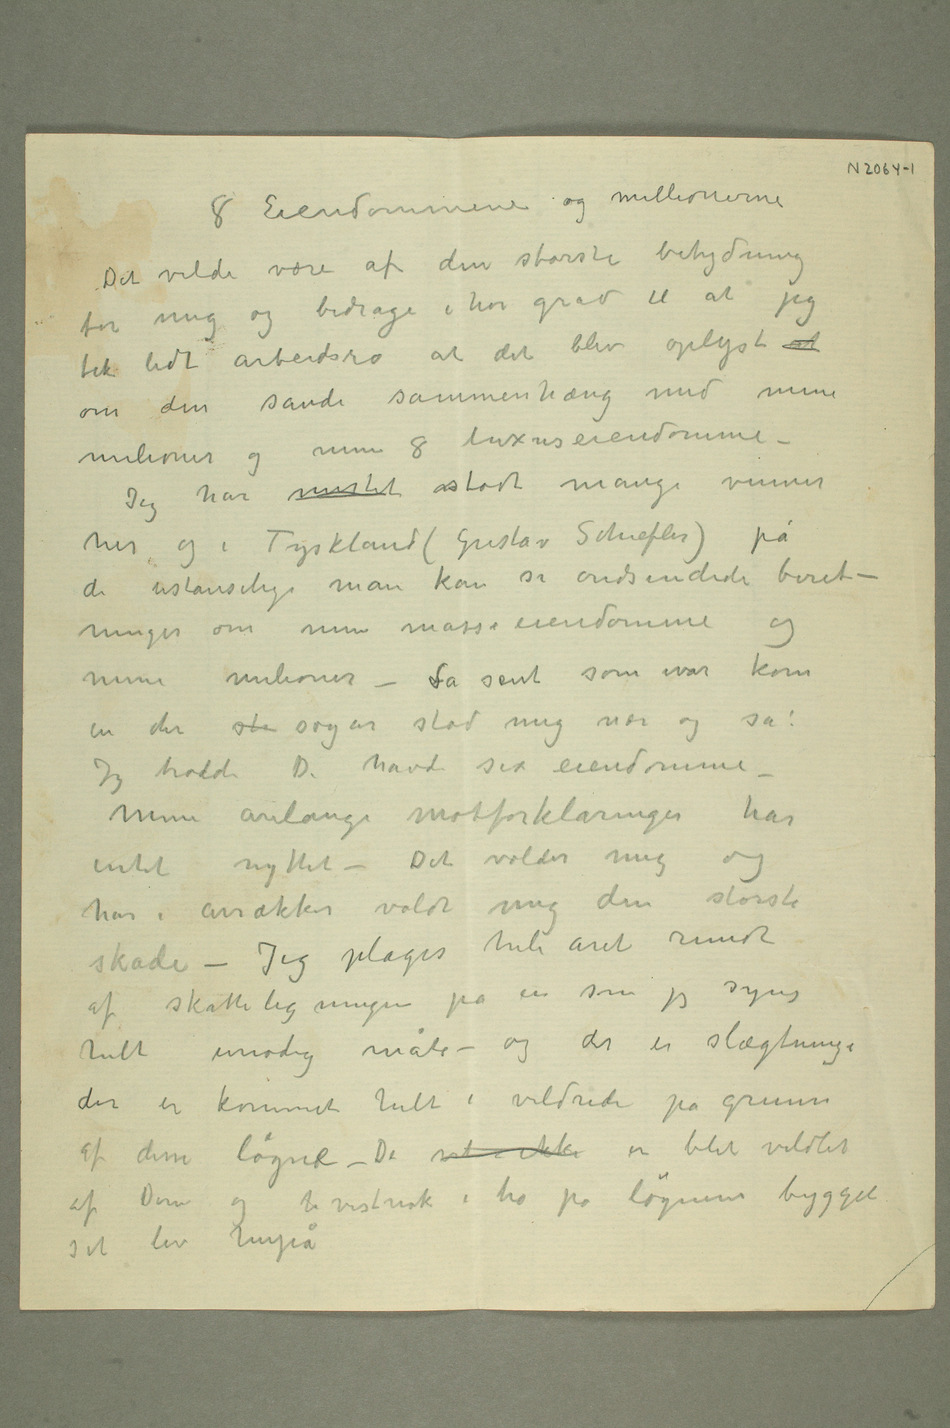 N 2064-1
8 Eiendommene og millionerne
Det vilde være af den største betydning
for mig og bidrage i høi grad til at jeg
fik lidt arbeidsro at det blev oplyst at
om den sande sammenhæng med mine
milioner og mine 8 luxuseiendomme –
Jeg har mistet støtt mange venner
her og i Tyskland (Gustav Schiefler) på
de ustanselige man kan si ondsindede beret–
ninger om mine masseeiendomme og
mine milioner – Så sent som ivår kom
en der sto sogar stod mig nær og sa:
Jeg trodde De havde sex eiendomme –
Mine årelange motforklaringer har
intet nyttet – Det volder mig og
har i årrækker voldt mig den største
skade – Jeg plages hele året rundt
af skatteligningen på en som jeg synes
helt unødig måte – og der er slægtninge
der er kommet helt i vildrede på grunn
af disse løgne – De vet ikke er blet vildlet
af Dem og til i tro på løgnene bygget
sit liv herpå